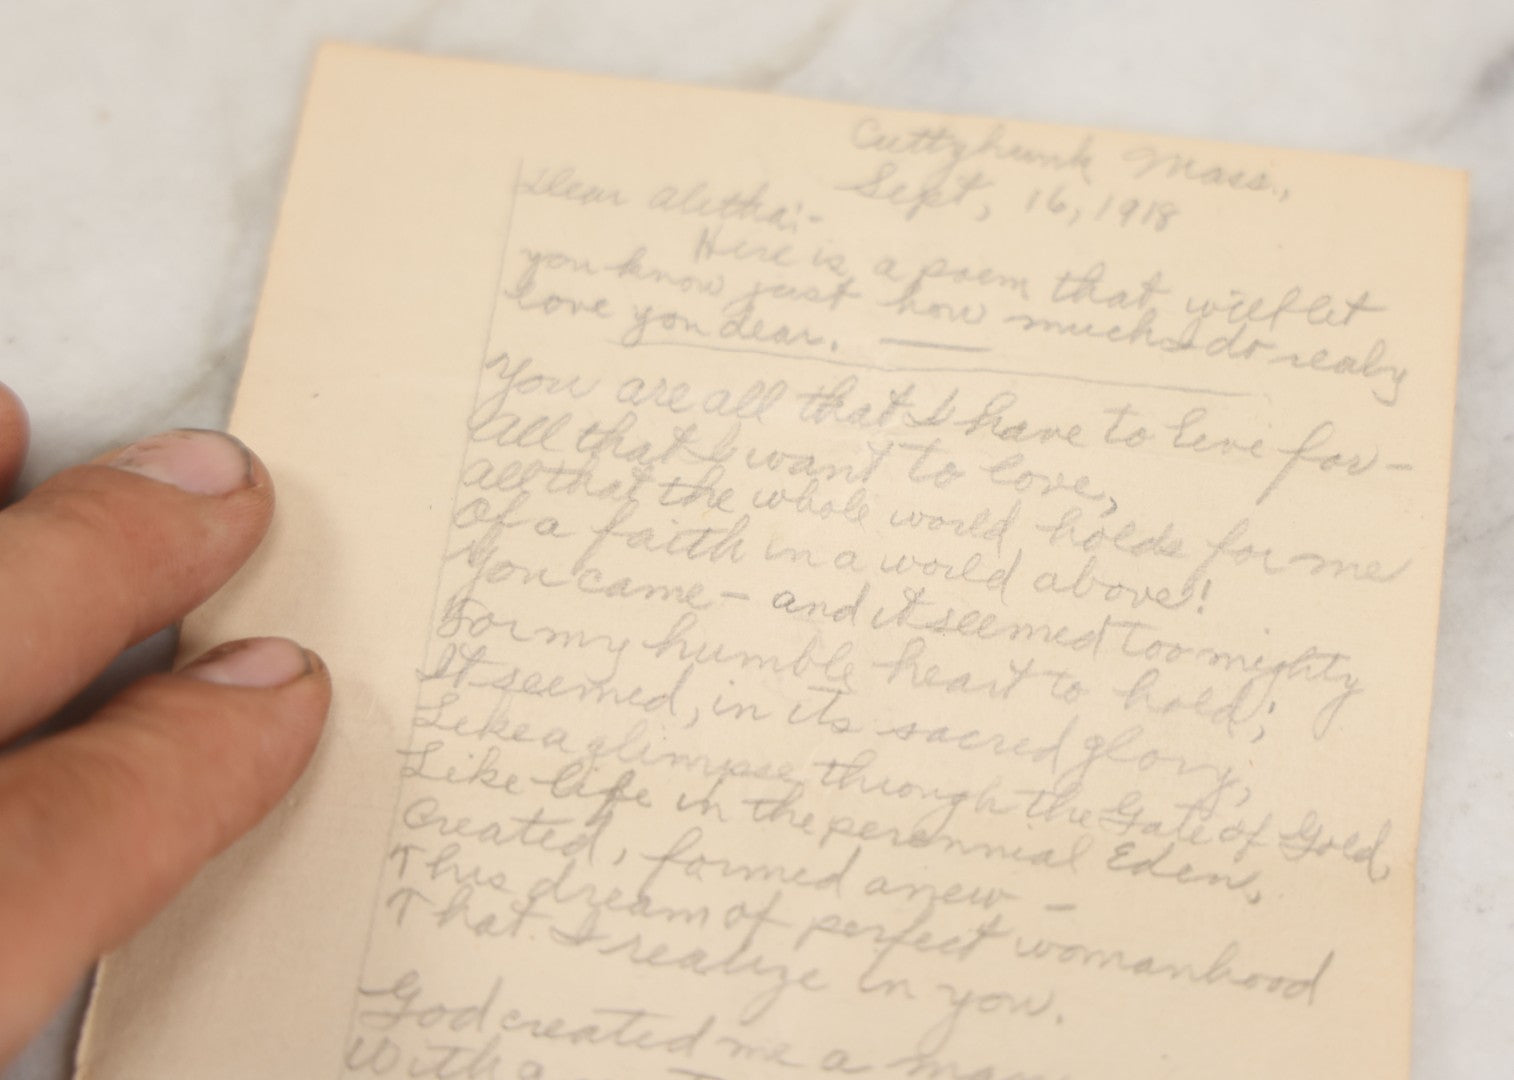 Cuttyhunk Mass.,
Sept, 16, 1918
Dear Aletha:-
Here is a poem that will let
you know just how much I do really
love you Dear. —
You are all that I have to live for-
All that I want to love,
All that the whole world holds for me
Of a faith in a world above!
You came - and it seemed too mighty
For my humble heart to hold;
It seemed, in its sacred glory,
Like a glimpse through the Gate of Gold,
Like life in the perennial Eden,
Created, formed anew -
This dream of perfect womanhood
That I realize in you.
God created me a
With a